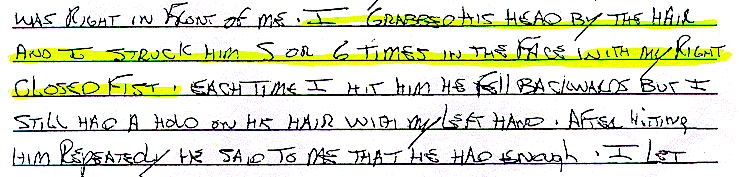 WAS RIGHT IN FRONT OF ME. I GRABBED HIS HEAD BY THE HAIR
AND I STRUCK HIM 5 OR 6 TIMES IN THE FACE WITH MY RIGHT
CLOSED FIST. EACH TIME I HIT HIM HE FELL BACKWARDS BUT I
STILL HAD A HOLD ON HIS HAIR WITH MY LEFT HAND. AFTER HITTING
HIM REPEATEDLY HE SAID TO ME THAT HE HAD ENOUGH. I LET